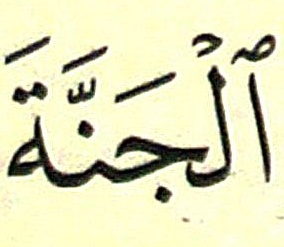 ٱلْجَنَّةَ